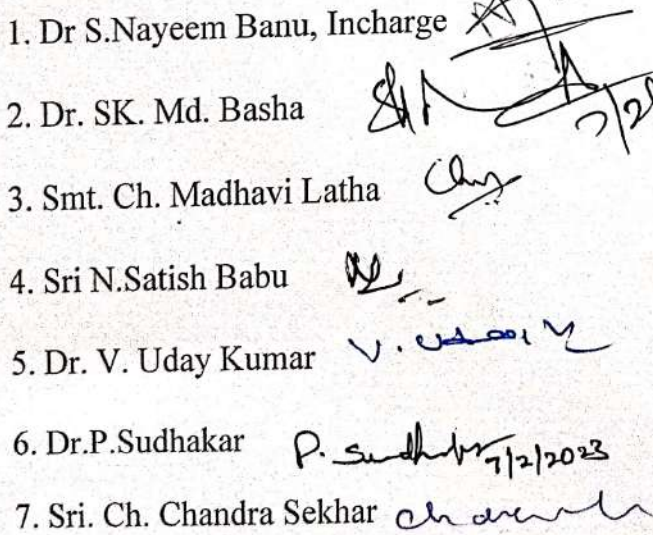 1. Dr S.Nayeem Banu, Incharge
2. Dr. SK. Md. Basha
3. Smt. Ch. Madhavi Latha
4. Sri N.Satish Babu
5. Dr. V. Uday Kumar
6. Dr.P.Sudhakar P. Sudhakar 7/2/2023
7. Sri. Ch. Chandra Sekhar